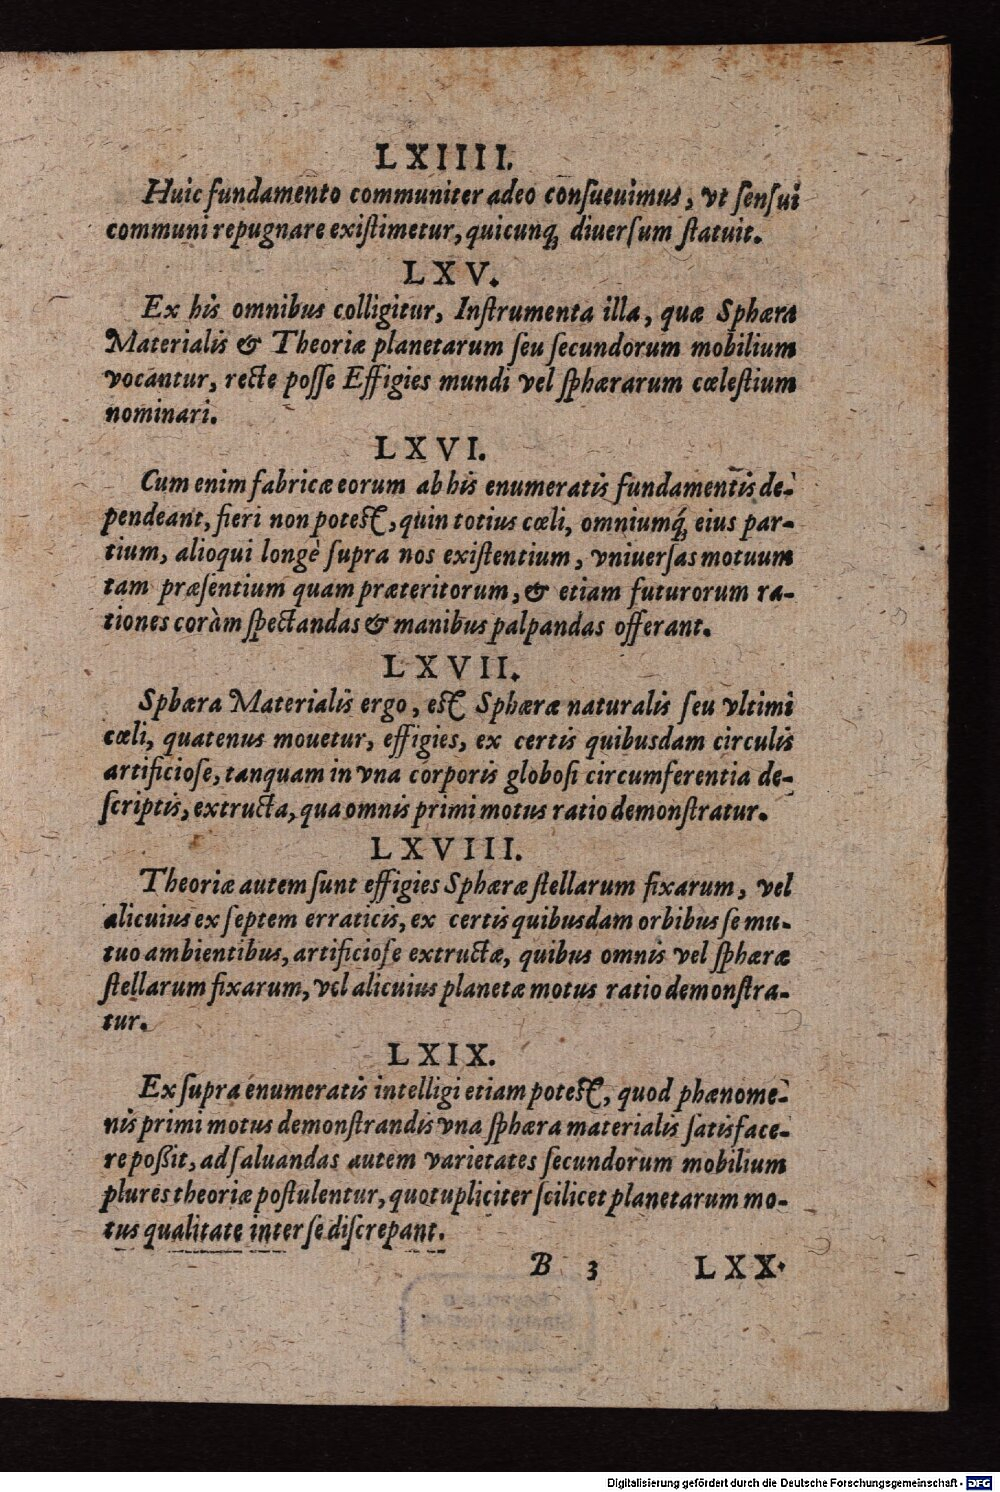 LXIIII.
Huic fundamento communiter adeo conſueuimus, vt ſenſui
communi repugnare exiſtimetur, quicunq; diuerſum ſtatuit.
LXV.
Ex his omnibus colligitur, Inſtrumenta illa, quæ Sphæra
Materialis & Theoriæ planetarum ſeu ſecundorum mobilium
vocantur, recte poſſe Effigies mundi vel ſphærarum cœleſtium
nominari.
LXVI.
Cum enim fabricæ eorum ab his enumeratis fundamentis de-
pendeant, fieri non poteſt, quin totius cœli, omniumq́; eius par-
tium, alioqui longè ſupra nos exiſtentium, vniuerſas motuum
tam præſentium quam præteritorum, & etiam futurorum ra-
tiones coràm ſpectandas & manibus palpandas offerant.
LXVII.
Sphæra Materialis ergo, eſt Sphæræ naturalis ſeu vltimi
cœli, quatenus mouetur, effigies, ex certis quibusdam circulis
artificioſe, tanquam in vna corporis globoſi circumferentia de-
ſcriptis, extructa, qua omnis primi motus ratio demonſtratur.
LXVIII.
Theoriæ autem ſunt effigies Sphæræ ſtellarum fixarum, vel
alicuius ex ſeptem erraticis, ex certis quibusdam orbibus ſe mu-
tuo ambientibus, artificioſe extructæ, quibus omnis vel ſphæræ
ſtellarum fixarum, vel alicuius planetæ motus ratio demonſtra-
tur.
LXIX.
Ex ſupra enumeratis intelligi etiam poteſt, quod phænome-
nis primi motus demonſtrandis vna ſphæra materialis ſatisface-
re poßit, ad ſaluandas autem varietates ſecundorum mobilium
plures theoriæ poſtulentur, quotupliciter ſcilicet planetarum mo-
tus qualitate inter ſe diſcrepant.
B 3 LXX.
Digitalisierung gefördert durch die Deutsche Forschungsgemeinschaft - DFG